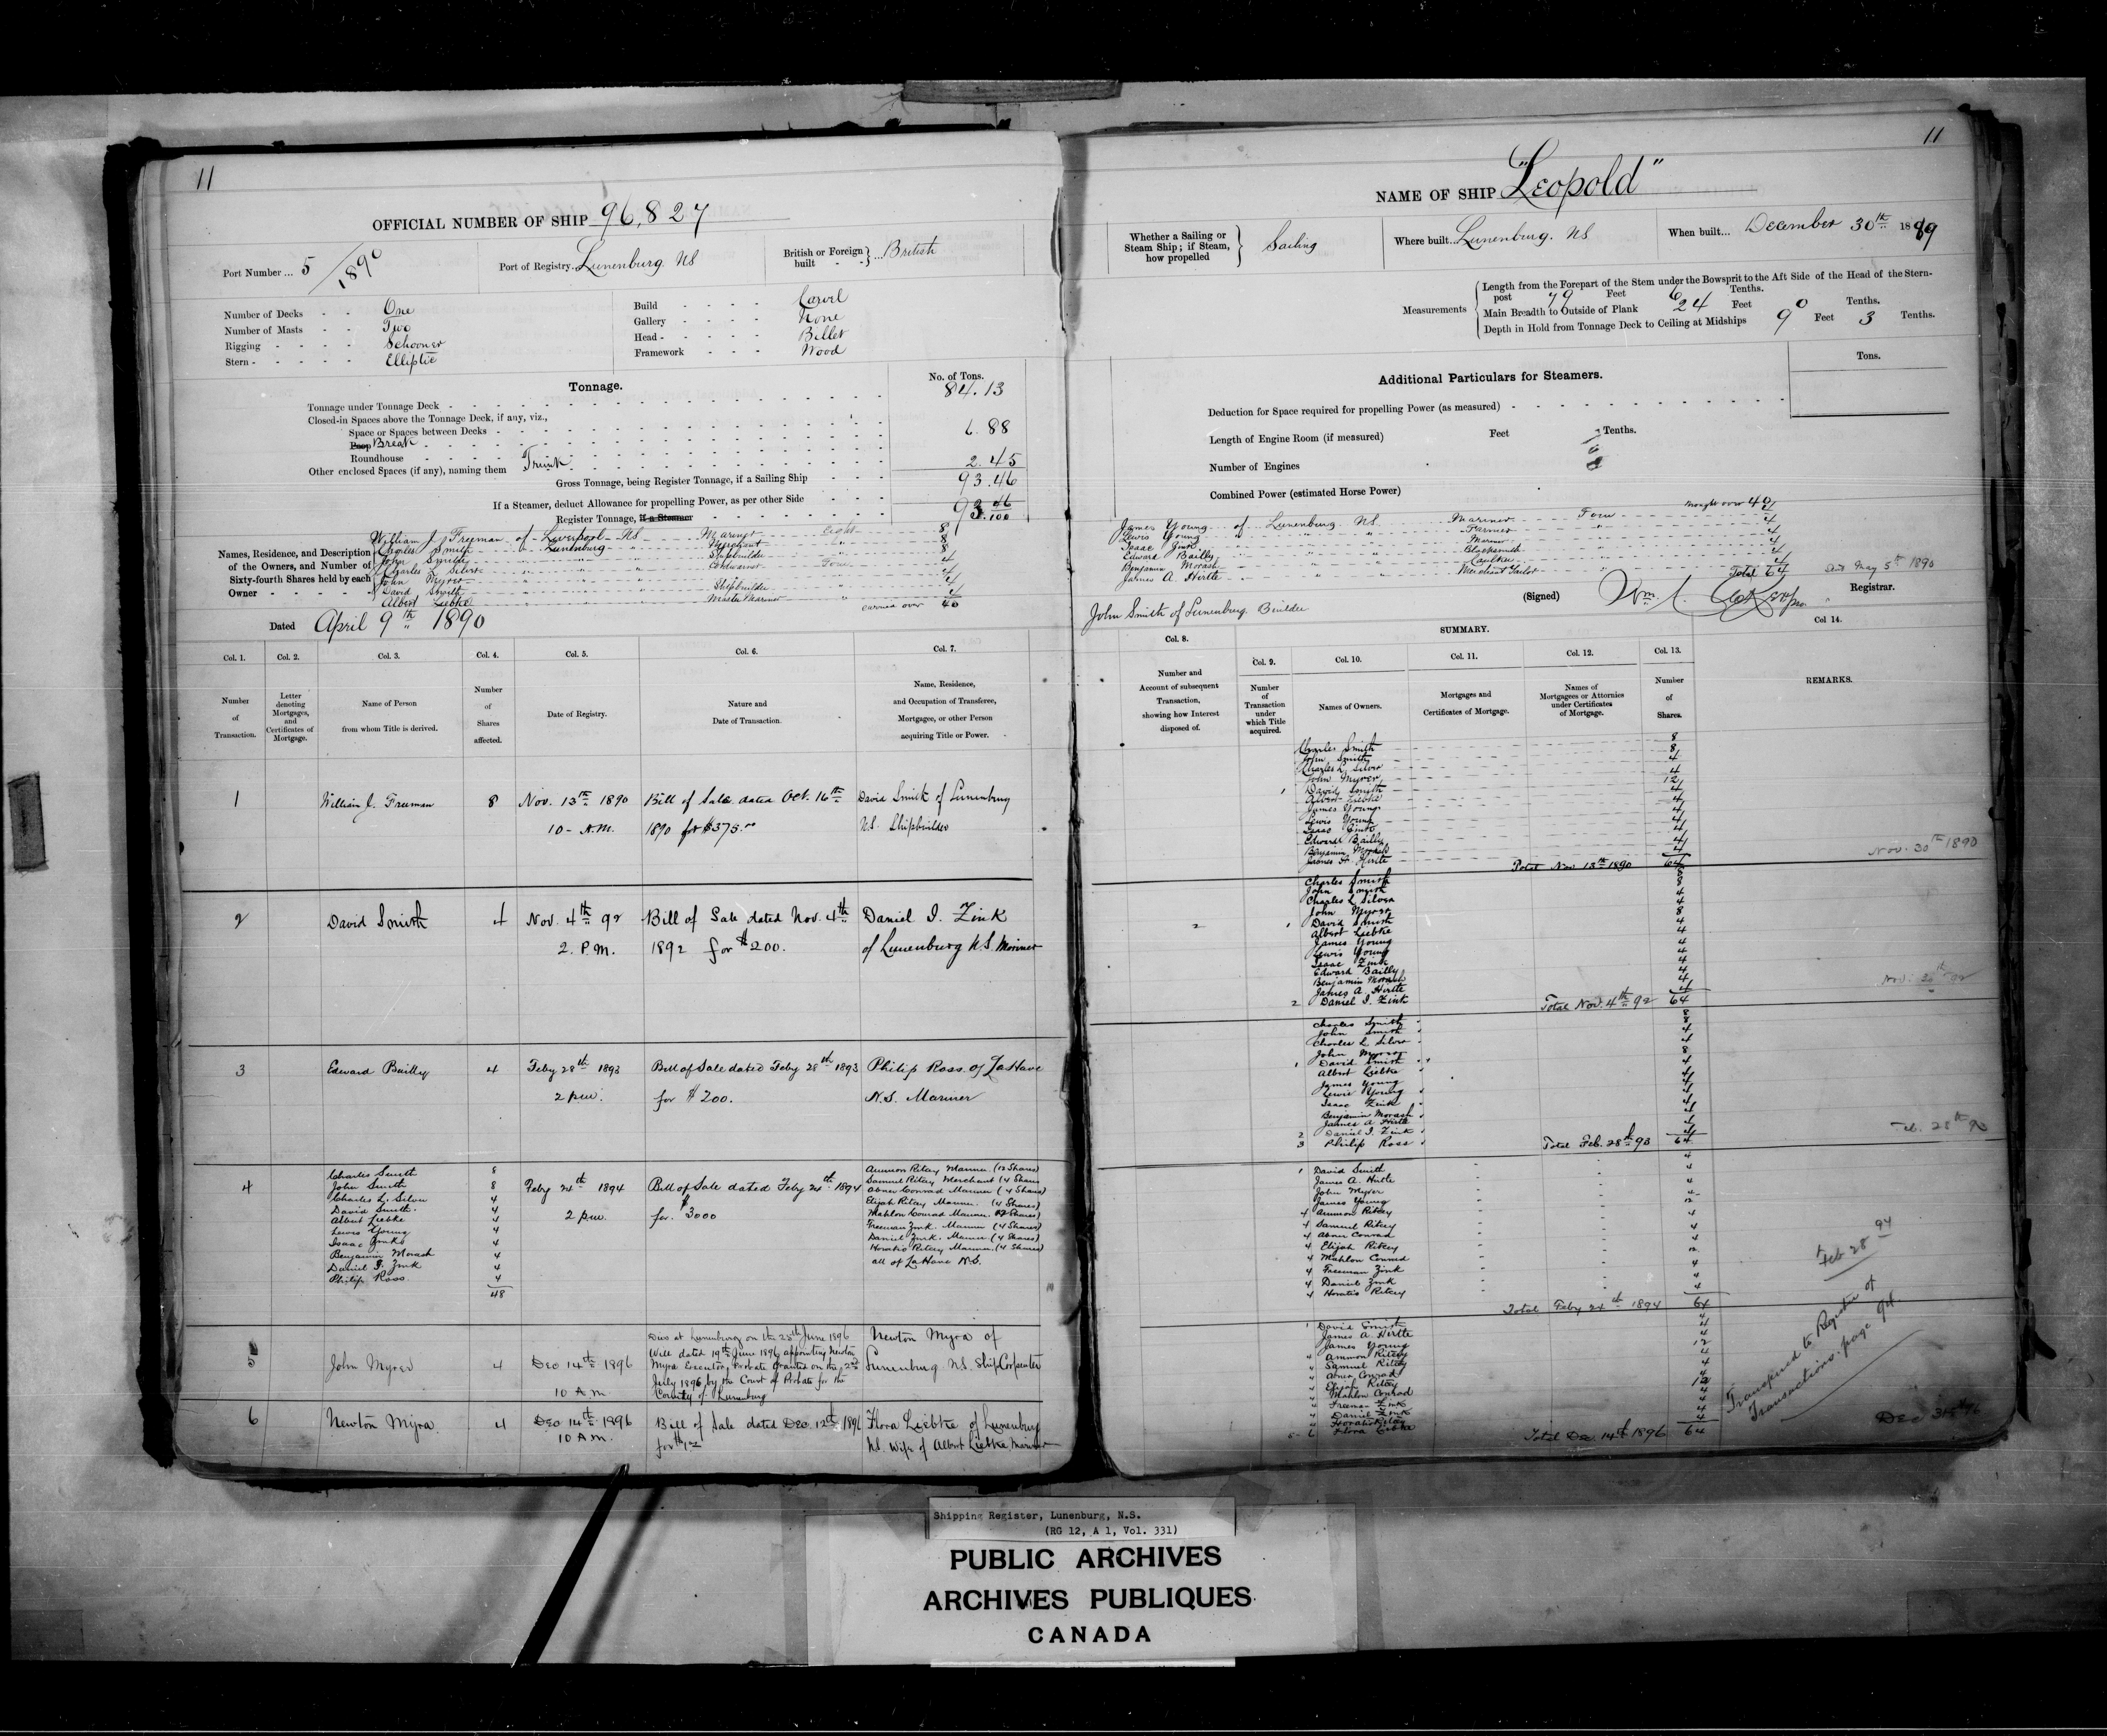 11
OFFICIAL NUMBER OF SHIP 96,827
Port Number ... 5/1890
Port of Registry. Lunenburg. NS
British or Foreign built - - } ... British
Number of Decks - - One
Number of Masts - - Two
Rigging - - - - Schooner
Stern - - - - - Elliptic
Build - - - - Carvil
Gallery - - - - None
Head - - - - - Billet
Framework - - - Wood
Tonnage.
No. of Tons.
Tonnage under Tonnage Deck - 84.13
Closed-in Spaces above the Tonnage Deck, if any, viz.,
Space or Spaces between Decks -
Poop Break 6.88
Roundhouse
Other enclosed Spaces (if any), naming them Trunk 2.45
Gross Tonnage, being Register Tonnage, if a Sailing Ship - - - 93.46
If a Steamer, deduct Allowance for propelling Power, as per other Side - - -
Register Tonnage, if a Steamer 93 46/100
Names, Residence, and Description of the Owners, and Number of Sixty-fourth Shares held by each Owner - - - - -
William J. Freeman of Liverpool NS Mariner Eight 8
Charles Smith " Lunenburg " Merchant " 8
John Smith " " " Shipbuilder " 8
Charles L Silver " " " Cordwainer Four 4
John Myrer " " " " 4
David Smith " " " Shipbuilder " 4
Albert Liebke " " " Master Mariner " 4
carried over 40
Dated April 9th 1890
Col. 1. Col. 2. Col. 3. Col. 4. Col. 5. Col. 6. Col. 7.
Number of Transaction.
Letter denoting Mortgages, and Certificates of Mortgage.
Name of Person from whom Title is derived.
Number of Shares affected.
Date of Registry.
Nature and Date of Transaction.
Name, Residence, and Occupation of Transferee, Mortgagee, or other Person acquiring Title or Power.
1 William J. Freeman 8 Nov. 13th 1890 Bill of Sale dated Oct. 16th David Smith of Lunenburg
10 - A.M. 1890 for $375.00 N.S. Shipbuilder
2 David Smith 4 Nov. 4th 92 Bill of Sale dated Nov. 4th Daniel I. Zink
2. P.M. 1892 for $200. of Lunenburg N.S. Mariner
3 Edward Bailly 4 Feby 28th 1893 Bill of Sale dated Feby 28th 1893 Philip Ross of LaHave
2 p.m. for $200. N.S. Mariner
4 Feby 24th 1894 Bill of Sale dated Feby 24th 1894
2 p.m. for $3000
Charles Smith 8
John Smith 8
Charles L. Silver 4
David Smith. 4
Albert Liebke 4
Lewis Young 4
Isaac Zink 4
Benjamin Morash 4
Daniel I. Zink 4
Philip Ross 4
48
Ammon Ritcey Mariner (12 Shares)
Samuel Ritcey Merchant (4 Shares
Abner Conrad Mariner (4 Shares)
Elijah Ritcey Mariner. (4 Shares)
Mahlon Conrad Mariner. 12 Shares)
Freeman Zink. Mariner (4 Shares)
Daniel Zink. Mariner (4 Shares)
Horatio Ritcey Mariner. (4 Shares)
all of LaHave N.S.
5 John Myrer 4 Dec 14th 1896
10 A.M.
Died at Lunenburg on the 25th June 1896
Will dated 19th June 1896, appointing Newton
Myra Executor, Probate Granted on the 2nd
July 1896 by the Court of Probate for the
County of Lunenburg
Newton Myra of
Lunenburg N.S. Ship Carpenter
6 Newton Myra. 4 Dec 14th 1896 Bill of Sale dated Dec. 12th 1896 Flora Liebke of Lunenburg
10 A.M. for $1 NS. Wife of Albert Liebke, Mariner
11
NAME OF SHIP "Leopold"
Whether a Sailing or Steam Ship; if Steam, how propelled } Sailing
Where built... Lunenburg. NS
When built... December 30th 1889
Measurements
Length from the Forepart of the Stem under the Bowsprit to the Aft Side of the Head of the Stern-
post 79 Feet 6 Tenths.
Main Breadth to Outside of Plank 24 Feet 0 Tenths.
Depth in Hold from Tonnage Deck to Ceiling at Midships 9 Feet 3 Tenths.
Additional Particulars for Steamers.
Tons.
Deduction for Space required for propelling Power (as measured)
Length of Engine Room (if measured) Feet Tenths.
Number of Engines
Combined Power (estimated Horse Power)
brought over 40
James Young of Lunenburg NS Mariner Four 4
Lewis Young " " " Farmer " 4
Isaac Zink " " " Mariner " 4
Edward Bailly " " " Blacksmith " 4
Benjamin Morash " " " Caulker " 4
James A. Hirtle " " " Merchant Tailor " 4
Total 64
May 5th 1890
John Smith of Lunenburg Builder
(Signed) Wm.
Registrar.
SUMMARY.
Col. 8. Col. 9. Col. 10. Col. 11. Col. 12. Col. 13. Col 14.
Number and Account of subsequent Transaction, showing how Interest disposed of.
Number of Transaction under which Title acquired.
Names of Owners.
Mortgages and Certificates of Mortgage.
Names of Mortgagees or Attornies under Certificates of Mortgage.
Number of Shares.
REMARKS.
Charles Smith 8
John Smith 8
Charles L. Silver 4
John Myrer 4
1 David Smith 12
Albert Liebke 4
James Young 4
Lewis Young 4
Isaac Zink 4
Edward Bailly 4
Benjamin Morash 4
James A Hirtle 4
Total Nov 13th 1890 64
Nov. 30th 1890
Charles Smith 8
John Smith 8
Charles L Silver 4
John Myrer 4
2 1 David Smith 8
Albert Liebke 4
James Young 4
Lewis Young 4
Isaac Zink 4
Edward Bailly 4
Benjamin Morash 4
James A. Hirtle 4
2 Daniel I. Zink 4
Total Nov. 4th 92 64
Charles Smith 8
John Smith 8
Charles L Silver 4
John Myrer 4
1 David Smith 8
Albert Liebke 4
James Young 4
Lewis Young 4
Isaac Zink 4
Benjamin Morash 4
James A Hirtle 4
2 Daniel I. Zink 4
3 Philip Ross 4
Total Feb. 28th 93 64
Feb. 28th 93
1 David Smith 4
James A. Hirtle 4
John Myrer 4
James Young 4
4 Ammon Ritcey 12
4 Samuel Ritcey 4
4 Abner Conrad 4
4 Elijah Ritcey 4
4 Mahlon Conrad 12
4 Freeman Zink 4
4 Daniel Zink 4
4 Horatio Ritcey 4
Total Feby 24th 1894 64
Feb 28 94
1 David Smith 4
James A. Hirtle 4
James Young 4
4 Ammon Ritcey 12
" Samuel Ritcey 4
" Abner Conrad 4
" Elijah Ritcey 4
" Mahlon Conrad 12
" Freeman Zink 4
" Daniel Zink 4
" Horatio Ritcey 4
5- 6 Flora Liebke 4
Total Dec. 14th 1896 64
Transferred to Register of
Transactions. page 94.
Dec 31st 96
Shipping Register, Lunenburg, N.S.
(RG 12, A 1, Vol. 331)
PUBLIC ARCHIVES
ARCHIVES PUBLIQUES
CANADA